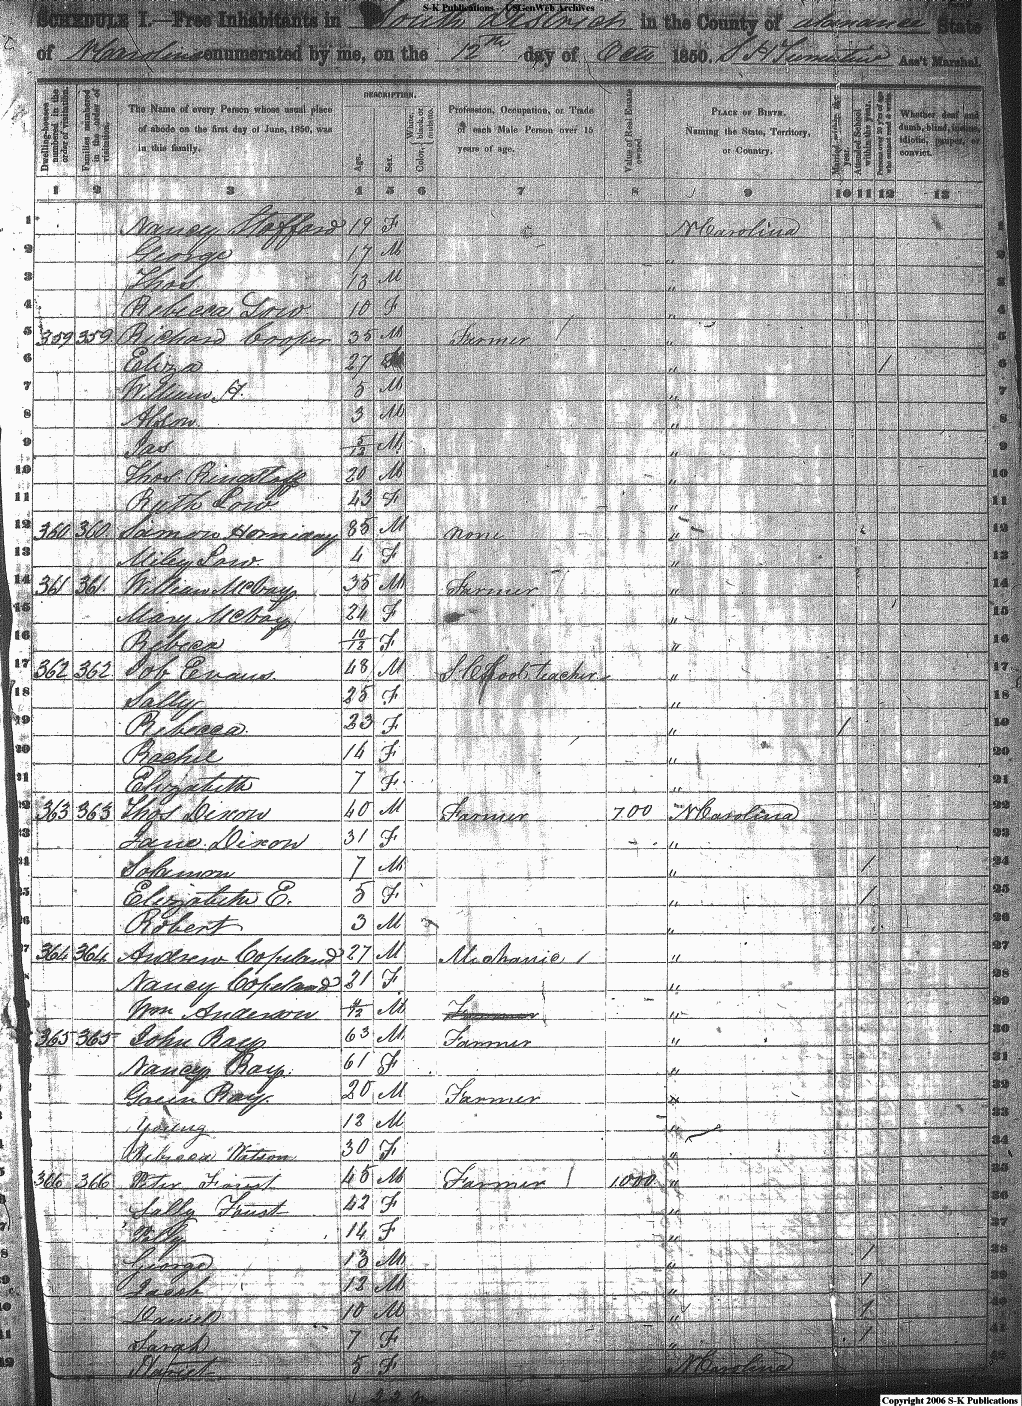 S-K Publications - USGenWeb Archives
SCHEDULE I.—Free Inhabitants in South District in the County of Alamance State
of N Carolina enumerated by me, on the 12th day of Oct 1850. Ass't Marshal.
Dwelling-houses numbered in the order of visitation.
Families numbered in the order of visitation.
The Name of every Person whose usual place of abode on the first day of June, 1850, was in this family.
DESCRIPTION.
Age.
Sex.
Color, White, black, or mulatto.
Profession, Occupation, or Trade of each Male Person over 15 years of age.
Value of Real Estate owned
PLACE OF BIRTH, Naming the State, Territory, or Country.
Married within the year.
Attended School within the year.
Persons over 20 y'rs of age who cannot read & write.
Whether deaf and dumb, blind, insane, idiotic, pauper, or convict.
1 2 3 4 5 6 7 8 9 10 11 12 13
1 Nancy Stafford 19 F N Carolina 1
2 George 17 M " 2
3 Thos 13 M " 3
4 Rebecca Low 10 F " 4
5 359 359 Richard Cooper 35 M Farmer " 5
6 Eliza 27 " / 6
7 William H. 5 M " 7
8 3 M " 8
9 Jas 5/12 M " 9
10 Thos. 20 M " 10
11 Ruth Low 43 F " 11
12 360 360 Simon Horniday 85 M None " 12
13 Miley Low 4 F " 13
14 361 361 William McVay 35 M Farmer " 14
15 Mary McVay 24 F " 15
16 Rebeca 10/12 F " 16
17 362 362 Job Evans 48 M School teacher " 17
18 Sally 25 F " 18
19 Rebecca 23 F " / 19
20 Rachel 14 F " 20
21 Elizabeth 7 F " 21
22 363 363 Thos Dixon 40 M Farmer 700 N Carolina 22
23 Jane Dixon 31 F " 23
24 Solomon 7 M " / 24
25 Elizabeth E. 5 F " / 25
26 Robert 3 M " 26
27 364 364 Andrew Copeland 27 M Mechanic " 27
28 Nancy Copeland 21 F " 28
29 Wm Anderson M Farmer " 29
30 365 365 John Ray 63 M Farmer " 30
31 Nancy Ray 61 F 31
32 Green Ray 20 M Farmer " 32
33 Young 12 M " 33
34 Rebecca Watson 30 F " 34
35 366 366 Peter Foust 45 M Farmer 1000 " 35
36 Sally Foust 42 F " 36
37 14 F " 37
38 George 13 M " / 38
39 12 M " / 39
40 Daniel 10 M " / 40
41 Sarah 7 F " / 41
42 5 F N Carolina 42
Copyright 2006 S-K Publications